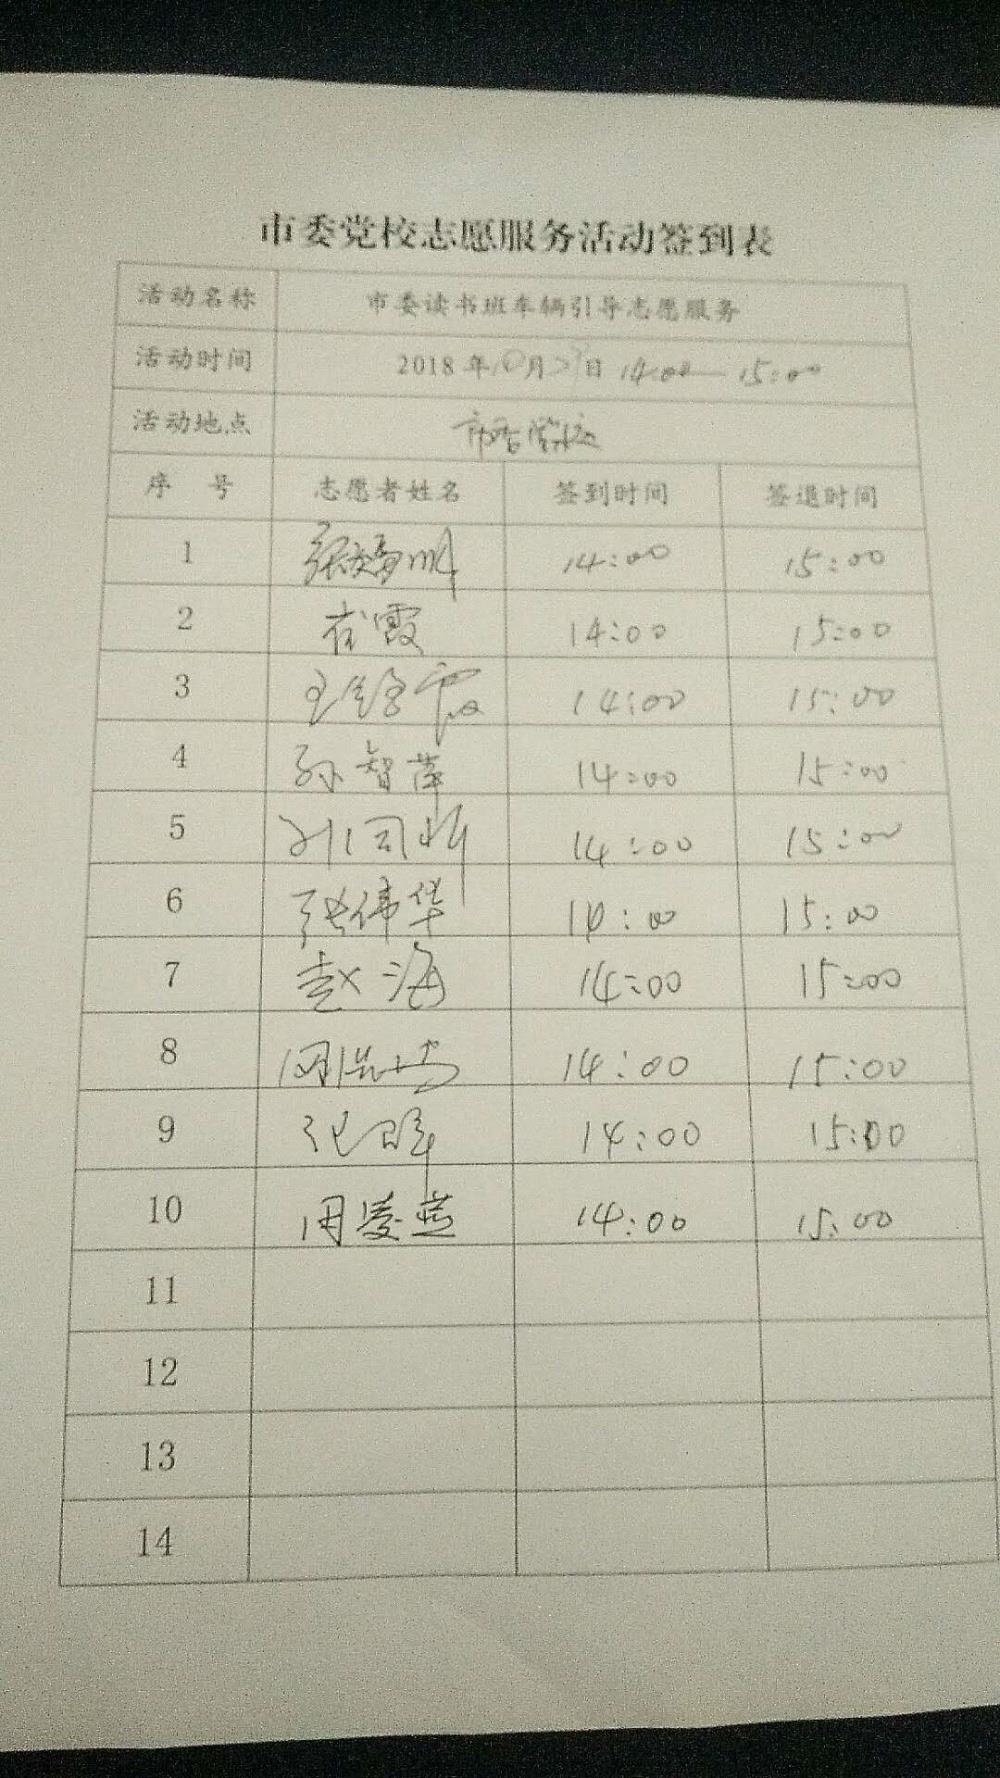 市委党校志愿服务活动签到表
活动名称 市委读书班车辆引导志愿服务
活动时间 2018年10月29日 14:00—15:00
活动地点 市委党校
序 号 志愿者姓名 签到时间 签退时间
1 14:00 15:00
2 崔霞 14:00 15:00
3 14:00 15:00
4 孙智萍 14:00 15:00
5 14:00 15:00
6 张伟华 14:00 15:00
7 赵海 14:00 15:00
8 14:00 15:00
9 14:00 15:00
10 14:00 15:00
11
12
13
14